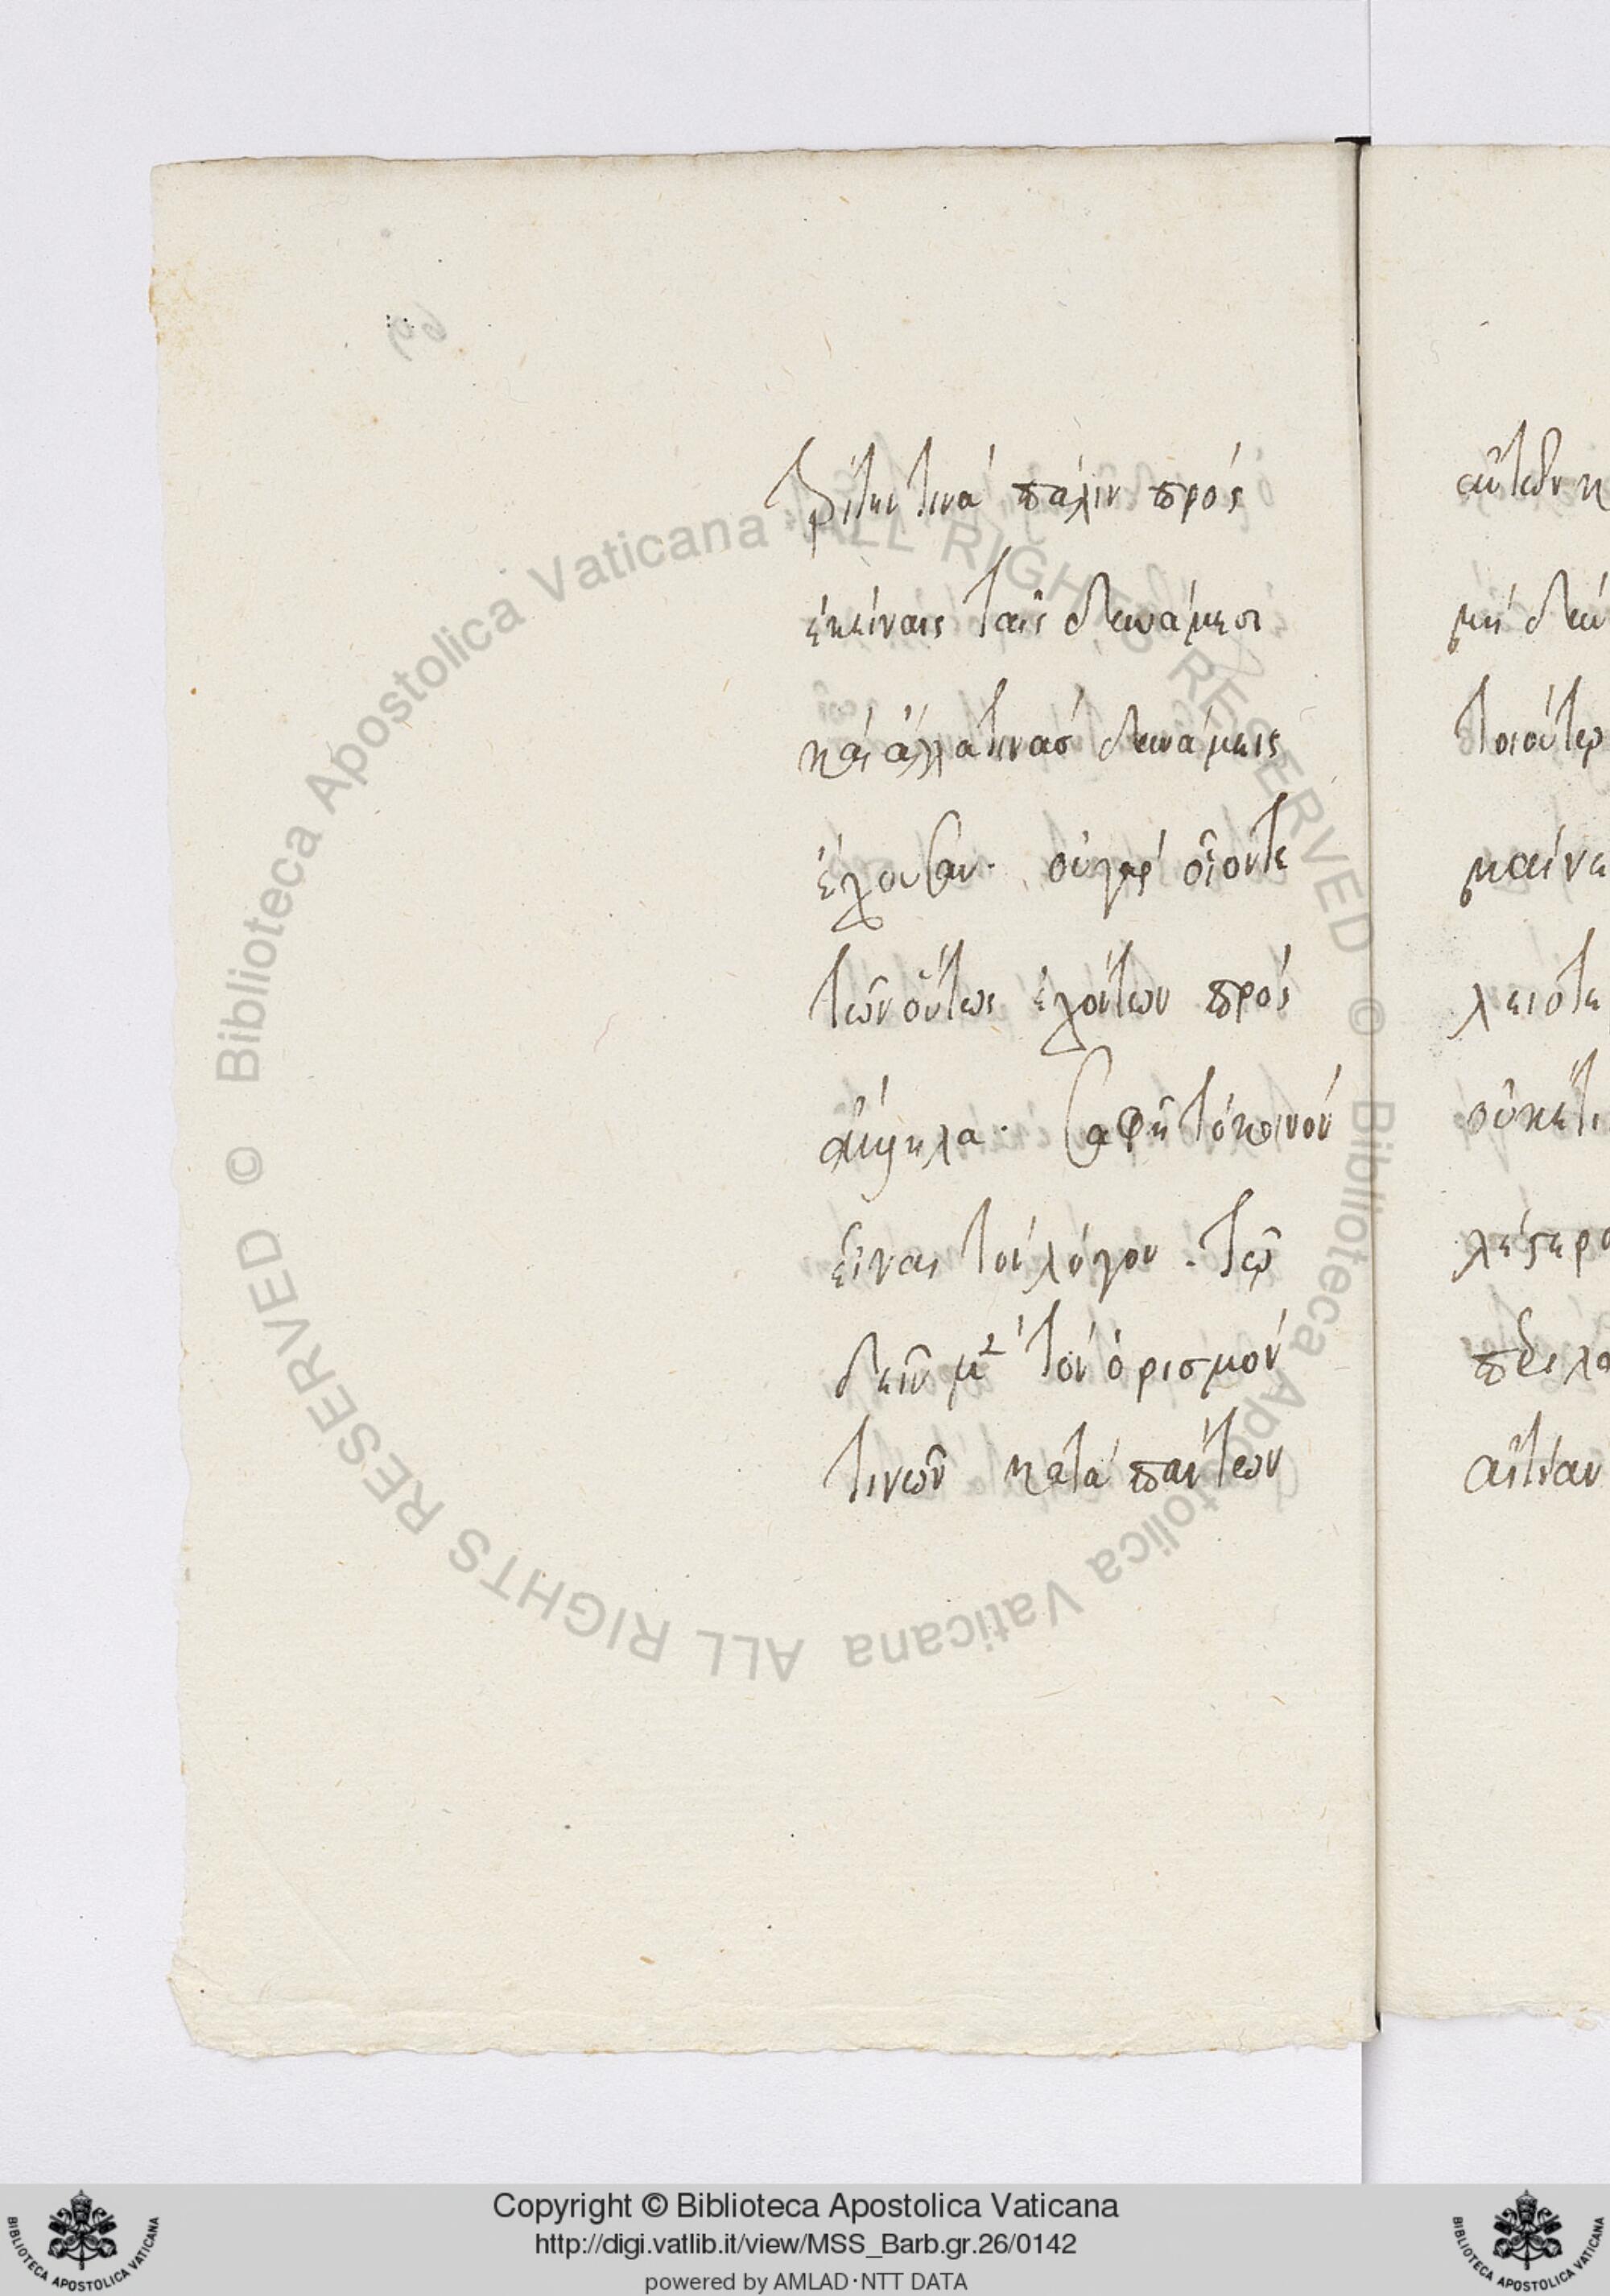 τρίτην τινά πάλιν πρός
ἐκείναις ταῖς δυνάμεσι
καὶ ἄλλα τινάσ δυνάμεις
ἐχουσαν. οὐ γαρ οἷον τε
τῶν οὕτως ἐχόντων πρός
ἄλληλα. σαφῆ τὸ κοινόν
εἶναι τόν λόγον. τῶ
δεῖν μ² τόν ὁρισμόν
τινῶν κατά πάντων
μή
τοιούτερ
μαίνε
λειότη
οὐκέτι
αἰτίαν
Biblioteca Apostolica Vaticana ALL RIGHTS RESERVED ©
Biblioteca Apostolica Vaticana ALL RIGHTS RESERVED ©
Copyright © Biblioteca Apostolica Vaticana
http://digi.vatlib.it/view/MSS_Barb.gr.26/0142
powered by AMLAD·NTT DATA
BIBLIOTECA APOSTOLICA VATICANA
BIBLIOTECA APOSTOLICA VATICANA